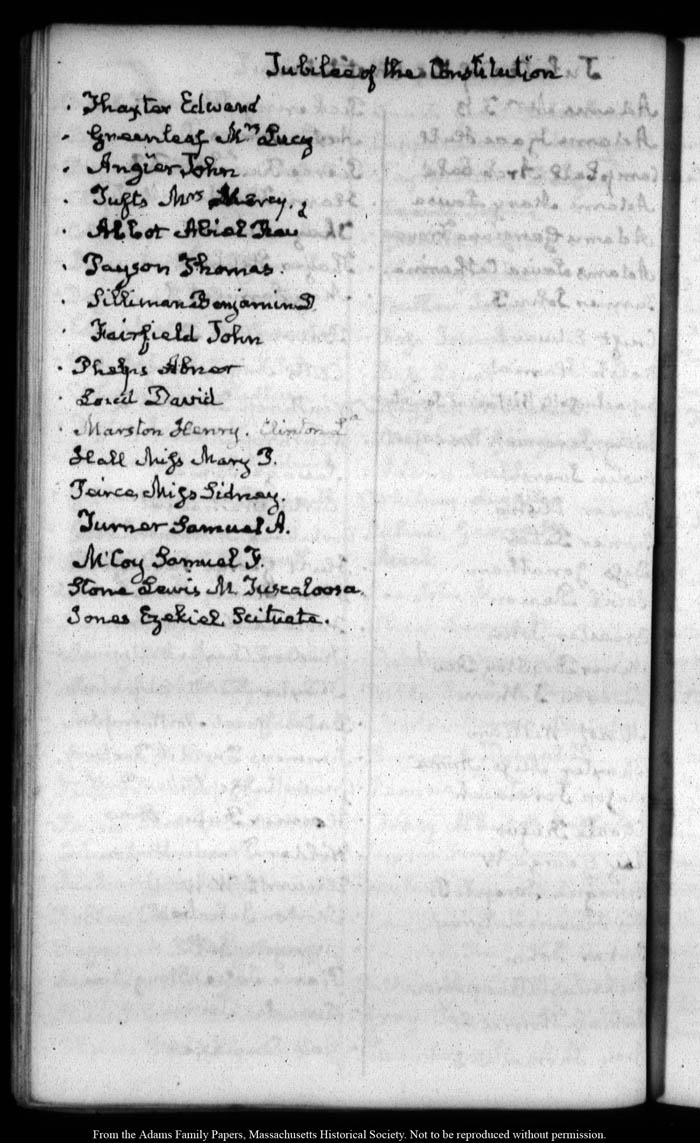 Jubilee of the Constitution
. Thaxter Edward
. Greenleaf Mrs Lucy
. Angier John
. Tufts Mrs Mercy.
. Abbot Abiel
. Payson Thomas.
. Silliman Benjamin D.
. Fairfield John
. Phelps Abner
. Lord David
. Marston Henry. Clinton La
Hall Miss Mary T.
Peirce, Miss Sidney.
Turner Samuel A.
McCoy Samuel F.
Stone Lewis M. Tuscaloosa.
Jones Ezekiel Scituate.
From the Adams Family Papers, Massachusetts Historical Society. Not to be reproduced without permission.